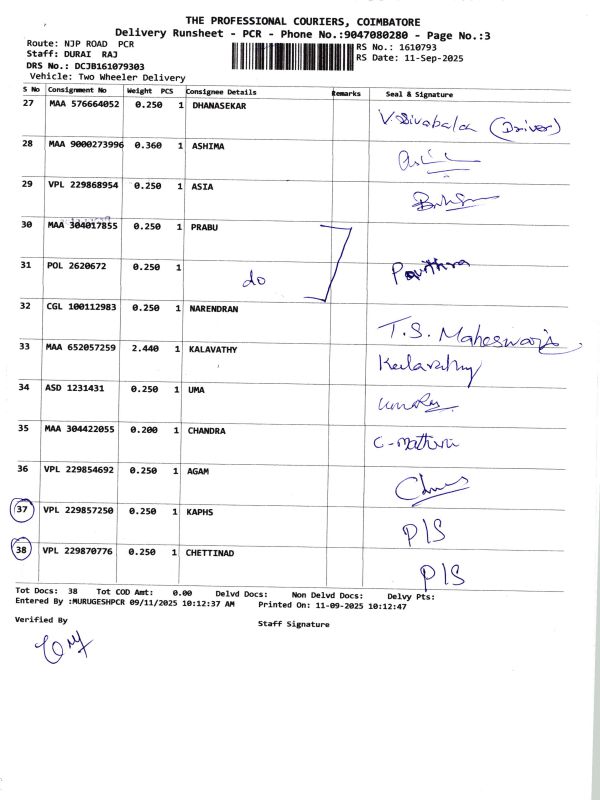 THE PROFESSIONAL COURIERS, COIMBATORE
Delivery Runsheet - PCR - Phone No.:9047080280 - Page No.:3
Route: NJP ROAD PCR
RS No.: 1610793
Staff: DURAI RAJ
RS Date: 11-Sep-2025
DRS No.: DCJB161079303
Vehicle: Two Wheeler Delivery
S No Consignment No Weight PCS Consignee Details Remarks Seal & Signature
27 MAA 576664052 0.250 1 DHANASEKAR V. Sivabala (Driver)
28 MAA 9000273996 0.360 1 ASHIMA
29 VPL 229868954 0.250 1 ASIA
30 MAA 304017855 0.250 1 PRABU
31 POL 2620672 0.250 1 do Pavithra
32 CGL 100112983 0.250 1 NARENDRAN T.S. Maheswari
33 MAA 652057259 2.440 1 KALAVATHY Kalavathy
34 ASD 1231431 0.250 1 UMA
35 MAA 304422055 0.200 1 CHANDRA C-mathivi
36 VPL 229854692 0.250 1 AGAM
37 VPL 229857250 0.250 1 KAPHS P/S
38 VPL 229870776 0.250 1 CHETTINAD P/S
Tot Docs: 38 Tot COD Amt: 0.00 Delvd Docs: Non Delvd Docs: Delvy Pts:
Entered By :MURUGESHPCR 09/11/2025 10:12:37 AM Printed On: 11-09-2025 10:12:47
Verified By
Staff Signature